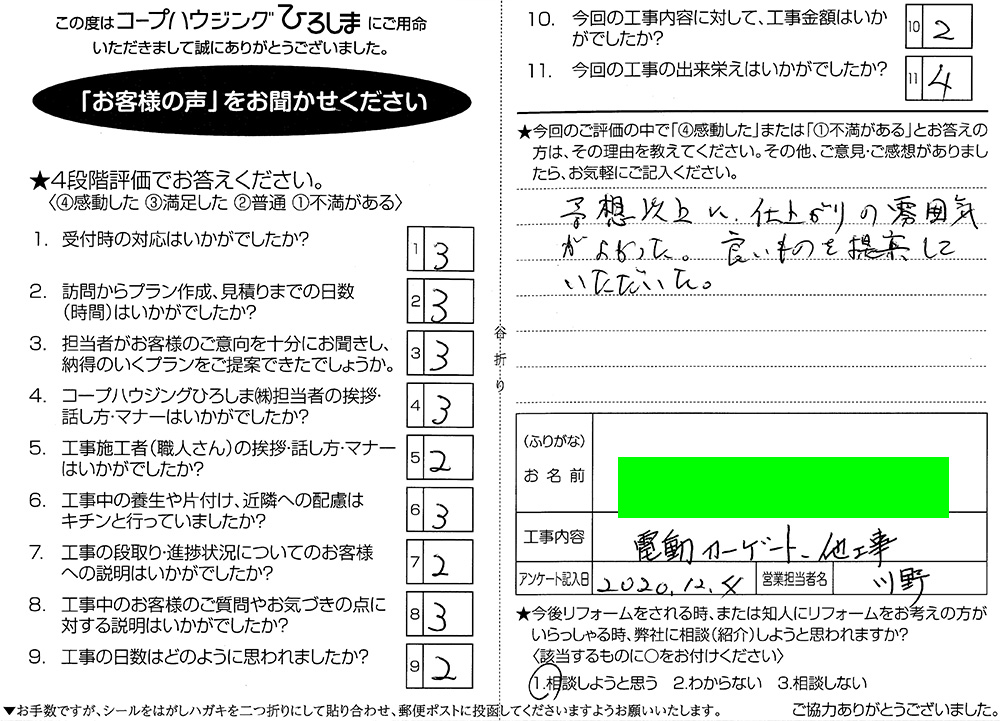 この度はコープハウジングひろしまにご用命
いただきまして誠にありがとうございました。
「お客様の声」をお聞かせください
★4段階評価でお答えください。
〈④感動した ③満足した ②普通 ①不満がある〉
1. 受付時の対応はいかがでしたか?
1 3
2. 訪問からプラン作成、見積りまでの日数
(時間)はいかがでしたか?
2 3
3. 担当者がお客様のご意向を十分にお聞きし、
納得のいくプランをご提案できたでしょうか。
3 3
4. コープハウジングひろしま㈱担当者の挨拶・
話し方・マナーはいかがでしたか?
4 3
5. 工事施工者(職人さん)の挨拶・話し方・マナー
はいかがでしたか?
5 2
6. 工事中の養生や片付け、近隣への配慮は
キチンと行っていましたか?
6 3
7. 工事の段取り・進捗状況についてのお客様
への説明はいかがでしたか?
7 2
8. 工事中のお客様のご質問やお気づきの点に
対する説明はいかがでしたか?
8 3
9. 工事の日数はどのように思われましたか?
9 2
▼お手数ですが、シールをはがしハガキを二つ折りにして貼り合わせ、郵便ポストに投函してくださいますようお願いいたします。
谷折り
10. 今回の工事内容に対して、工事金額はいか
がでしたか?
10 2
11. 今回の工事の出来栄えはいかがでしたか?
11 4
★今回のご評価の中で「④感動した」または「①不満がある」とお答えの
方は、その理由を教えてください。その他、ご意見・ご感想がありまし
たら、お気軽にご記入ください。
予想以上に、仕上がりの雰囲気
がよかった。良いものを提案して
いただいた。
(ふりがな)
お名前
工事内容 電動カーゲート、他工事
アンケート記入日 2020.12.4 営業担当者名 川野
★今後リフォームをされる時、または知人にリフォームをお考えの方が
いらっしゃる時、弊社に相談(紹介)しようと思われますか?
〈該当するものに○をお付けください〉
1.相談しようと思う 2.わからない 3.相談しない
ご協力ありがとうございました。